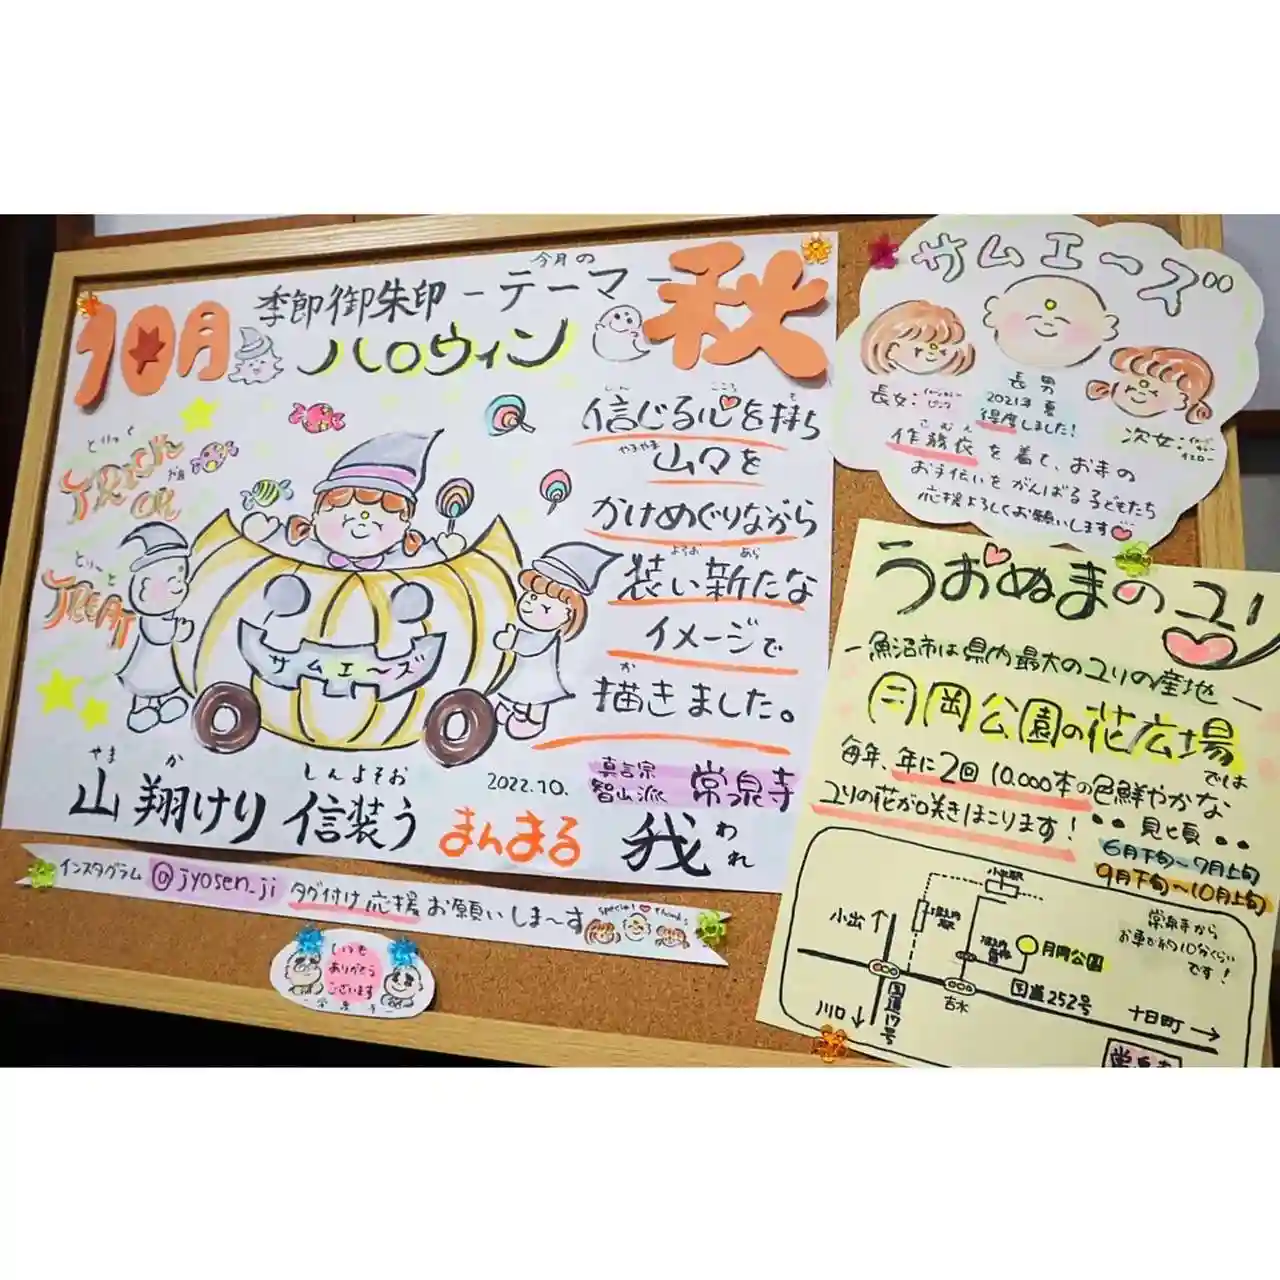 10月
季節御朱印 - 今月のテーマ -
ハロウィン
秋
とりっく
TRICK
おあ
OR
とりーと
TREAT
サムエーズ
信じる心を持ち
山々を
かけめぐりながら
装い新たな
イメージで
描きました。
2022.10.
真言宗
智山派
常泉寺
やま か しんよそお
山翔けり信装う まんまる 我
われ
インスタグラム @jyosen_ji タグ付け応援お願いしま〜す
special thanks
いつも
ありがとう
ございます
サムエーズ
長女:
ピンク
長男
2021年 夏
得度しました!
次女:
イエロー
さむえ
作務衣を着て、お寺の
お手伝いをがんばる子どもたち
応援よろしくお願いします
うおぬまのユリ
- 魚沼市は県内最大のユリの産地 -
月岡公園の花広場
では
毎年、年に2回10,000本の色鮮やかな
ユリの花が咲きほこります!
見頃
6月下旬〜7月上旬
9月下旬〜10月上旬
小出駅
小出↑
月岡公園
常泉寺から
お車で約10分くらい
です!
川口↓
国道17号
吉水
国道252号
十日町→
常泉寺